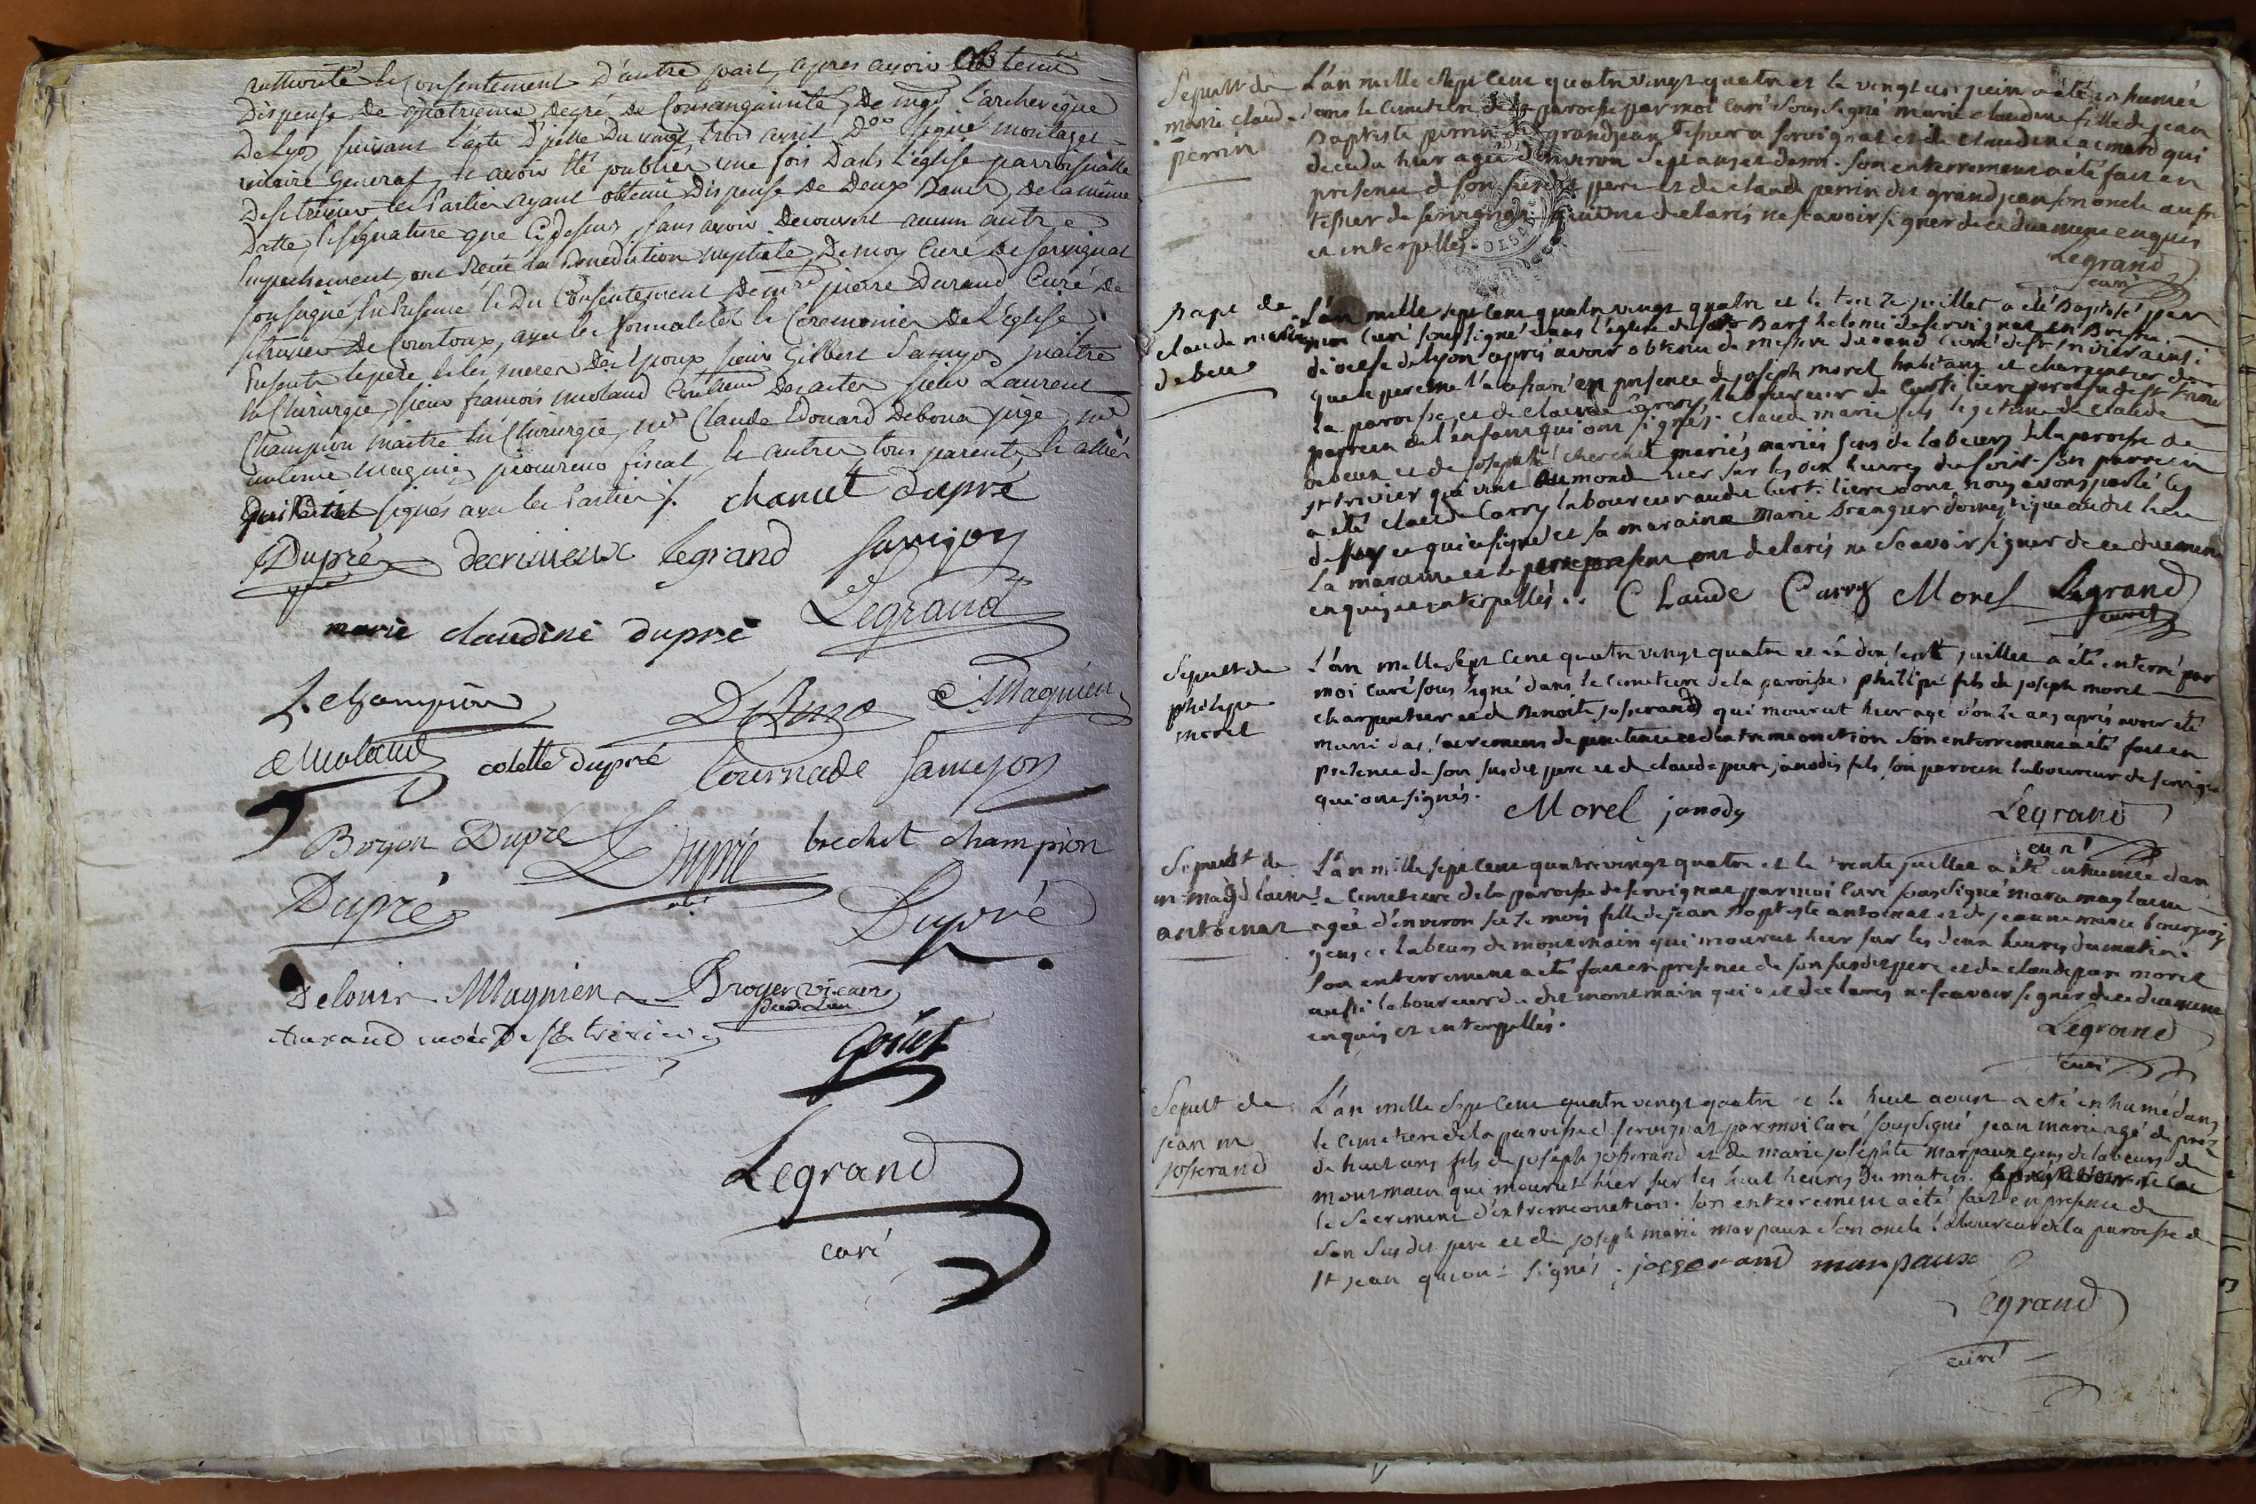 authorité le consentement d'autre part, apres avoir obtenu
dispense de quatrieme degré de consanguinité, de mgr l'archevêque
de Lyon suivant l'acte d'icelle du vingt trois avril dor signé montaget
vicaire general, et avoir été publiés une fois dans l'église parroissialle
de st trivier les parties ayant obtenu dispense de deux bancs de la même
datte, et signature que cy dessus, sans avoir decouvert aucun autre
empechement, ont reçu la benediction nuptiale, de moy curé de servignat
soussigné en presence et du consentement de mre pierre durand curé de
st trivier de courtoux, avec les formalités et ceremonies de l'église
presents le pere et les meres des epoux sieur Gilbert maitre
en chirurgie, sieur francois nicoland des actes sieur Laurent
Champion maitre en chirurgie, mr Claude Edouard Debona juge, mr
antoine magnien procureur fiscal, et autres tous parents et alliés
qui ont signés avec les parties ./. chanut dupré
Dupré decrivieux legrand
Legrand
marie claudine dupré
L. champion
Debona Magnien
colette dupré
Boyon Dupré Dupré brechet champion
Dupré Dupré
Delouis Magnien Broyer vicaire
dudit lieu
durand curé De st trivier
Goillet
Legrand
curé
Sepult de
marie claud
perrin
L'an mille sept cent quatre vingt quatre et le vingt juin a été inhumée
dans le cimetiere de la paroisse par moi curé sous signé marie claudine fille de jean
Baptiste perrin dit grandjean tessier a servignat et de claudine qui
deceda hier agée d'environ sept ans et demi. son enterrement a été fait en
presence de son susdit pere et de claude perrin dit grand jean son oncle aussi
tessier de servignat qui ont declarés ne scavoir signer de ce duement enquis
et interpellés.
Legrand
curé
Bapt de
claude marie
debeuf
L'an mille sept cent quatre vingt quatre et le treize juillet a été Baptisé par
moi curé sous signé dans l'église de st Barthelemi de servignat en Bresse
diocese de lyon aprés avoir obtenu de messire durand curé de st trivier ainsi
que le pere me l'a en presence de joseph morel habitant et charpentier de
la paroisse, et de claude Carry laboureur de Curti liere paroisse de st trivier
parrein de l'enfant qui ont signés. claud marie fils legitime de claude
debeuf et de josephte cherchet mariés mariés gens de labeurs de la paroisse de
st trivier qui vint au monde hier sur les dix heures du soir. son parrein
a été claude Carry laboureur audit curti liere dont nous avons parlé les
et qui a signé et sa maraine marie domestique audit lieu
la maraine et le pere present ont declarés ne scavoir signer de ce duement
enquis et interpellés. . Claude Carry Morel Legrand
curé
Sepult de
philipe
morel
L'an mille sept cent quatre vingt quatre et le dix sept juillet a été enterré par
moi curé sous signé dans le cimetiere de la paroisse, philipe fils de joseph morel
charpentier et de Benoite josserand qui mourut hier agé d'onze ans aprés avoir été
muni des sacremens de penitence et d'extreme onction son enterrement a été fait en
presence de son susdit pere et de claude janodis fils son parrein laboureur de servigna
qui ont signés.
Morel janody
Legrand
curé
Sepult de
m. magdelaine
antoinat
L'an mille sept cent quatre vingt quatre et le trente juillet a été inhumée dan
le cimetiere de la paroisse de servignat par moi curé sous signé marie maglaine
agée d'environ seize mois fille de jean Baptiste antoinat et de jeanne marie bourgeois
gens de labeurs de montmain qui mourut hier sur les deux heures du matin.
Son enterrement a été fait en presence de son susdit pere et de claude morel
aussi laboureur du dit montmain qui ont declarés ne scavoir signer de ce duement
enquis et interpellés.
Legrand
curé
Sepult de
jean m
josserand
L'an mille sept cent quatre vingt quatre et le huit aoust a été inhumé dans
le cimetiere de la paroisse de servignat par moi curé sous signé jean marie agé de prés
de huit ans fils de joseph josserand et de marie josephte marpaux gens de labeurs de
montmain qui mourut hier sur les huit heures du matin.
le sacrement d'extreme onction. son enterrement a été fait en presence de
son susdit pere et de joseph marie marpaux son oncle laboureur de la paroisse de
st jean qui ont signés. josserand marpaux
Legrand
curé